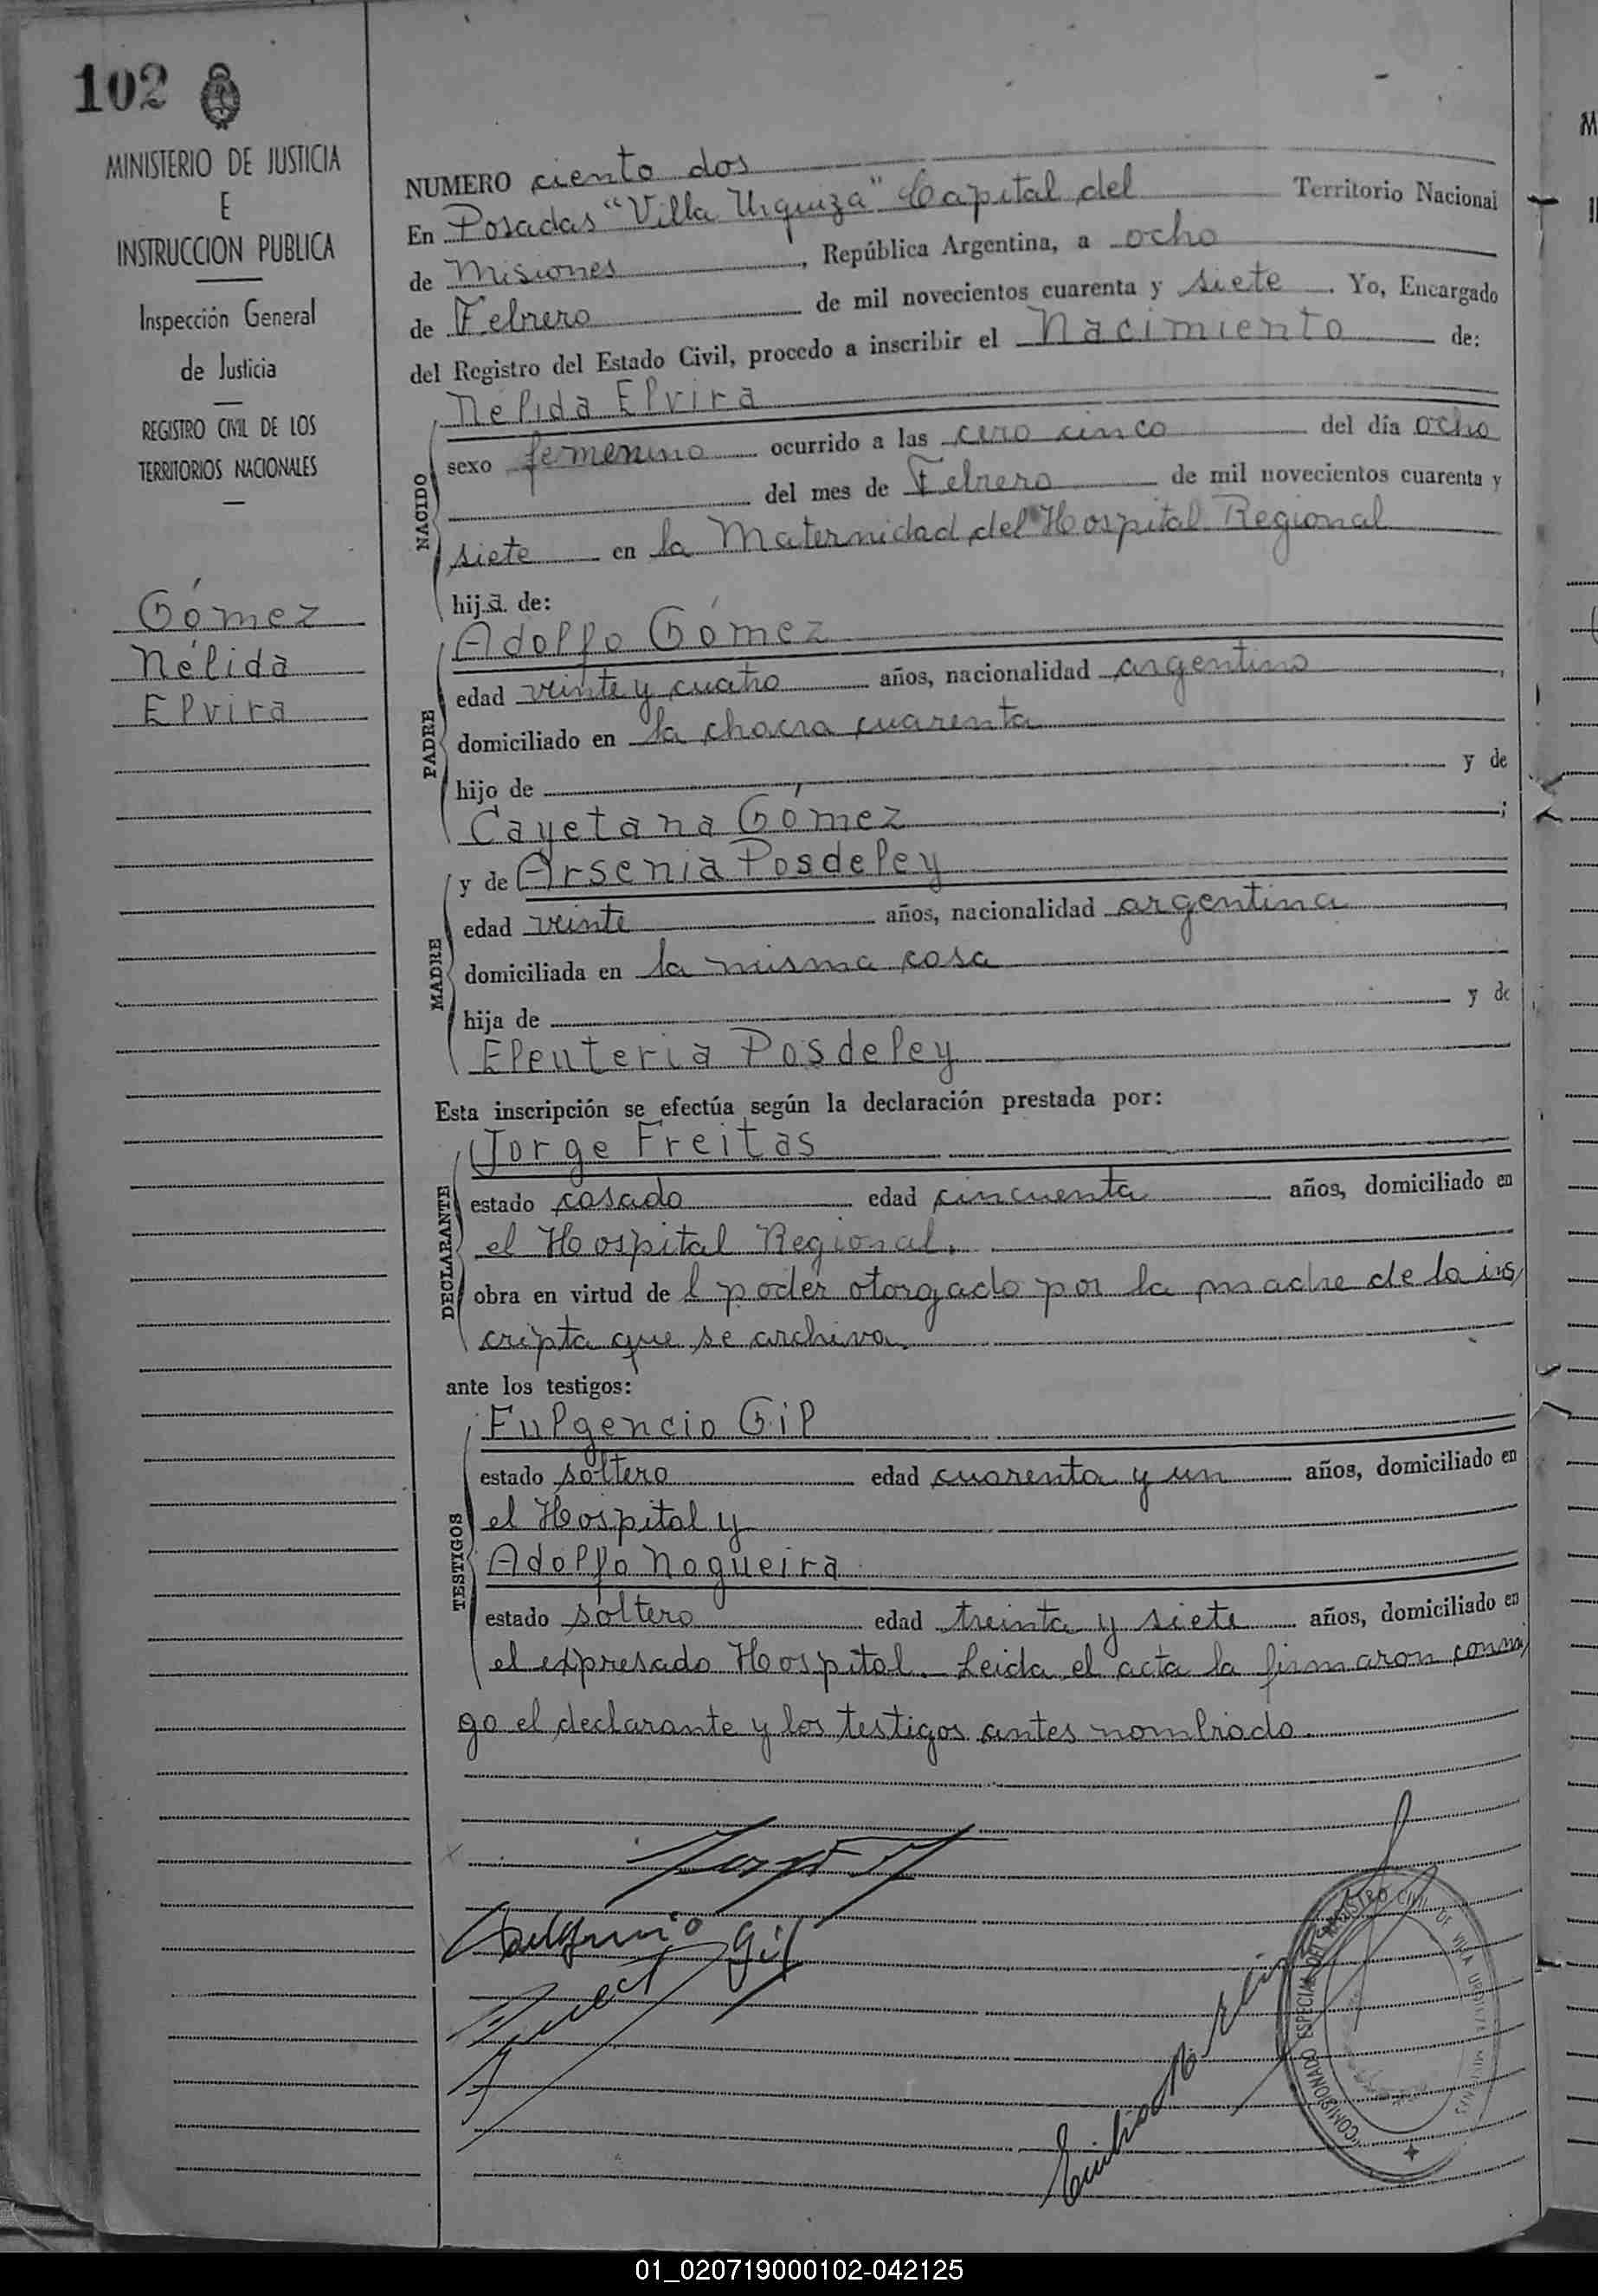 102
MINISTERIO DE JUSTICIA
E
INSTRUCCION PUBLICA
Inspección General
de Justicia
REGISTRO CIVIL DE LOS
TERRITORIOS NACIONALES
Gómez
Nélida
Elvira
NUMERO ciento dos
En Posadas "Villa Urquiza" Capital del Territorio Nacional
de Misiones, República Argentina, a ocho
de Febrero de mil novecientos cuarenta y siete. Yo, Encargado
del Registro del Estado Civil, procedo a inscribir el Nacimiento de:
Nélida Elvira
NACIDO
sexo femenino ocurrido a las cero cinco del día ocho
del mes de Febrero de mil novecientos cuarenta y
siete en la Maternidad del Hospital Regional
hija de:
Adolfo Gómez
PADRE
edad veinte y cuatro años, nacionalidad argentino,
domiciliado en la chacra cuarenta
hijo de y de
Cayetana Gómez;
y de Arsenia Posdeley
MADRE
edad veinte años, nacionalidad argentina,
domiciliada en la misma casa
hija de y de
Eleuteria Posdeley
Esta inscripción se efectúa según la declaración prestada por:
Jorge Freitas
DECLARANTE
estado casado edad cincuenta años, domiciliado en
el Hospital Regional.
obra en virtud del poder otorgado por la madre de la ins
cripta que se archiva.
ante los testigos:
Fulgencio Gil
TESTIGOS
estado soltero edad cuarenta y un años, domiciliado en
el Hospital y
Adolfo Nogueira
estado soltero edad treinta y siete años, domiciliado en
el expresado Hospital. Leida el acta la firmaron conmi
go el declarante y los testigos antes nombrado.
Fulgencio Gil
COMISIONADO ESPECIAL DEL REGISTRO CIVIL DE VILLA URQUIZA MISIONES
01_020719000102-042125